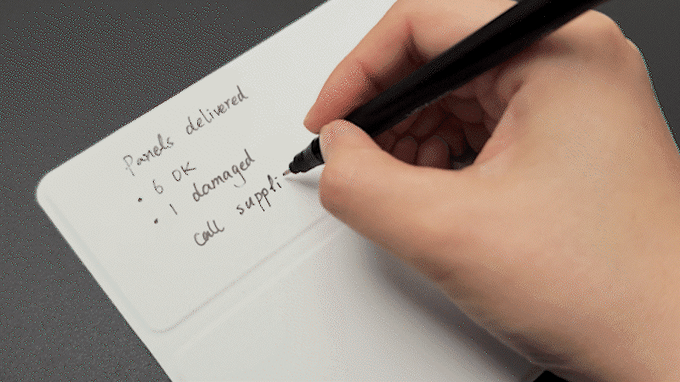 Panels delivered
• 6 OK
• 1 damaged
call suppli